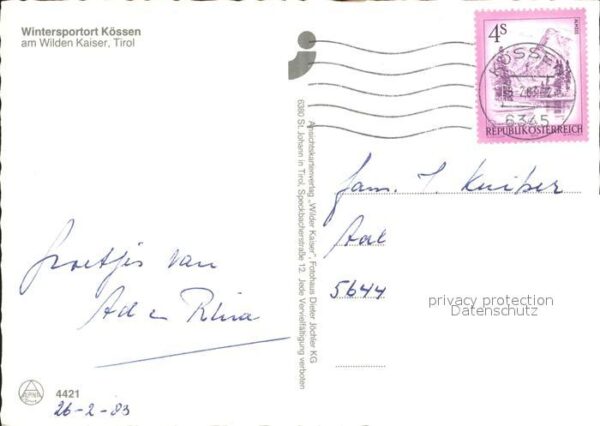 Wintersportort Kössen
am Wilden Kaiser, Tirol
4S
ALMSEE
REPUBLIK ÖSTERREICH
KÖSSEN
6345
Ansichtskartenverlag „Wilder Kaiser", Fotohaus Dieter Jöchler KG
6380 St. Johann in Tirol, Speckbacherstraße 12. Jede Vervielfältigung verboten
fam. J. Kuiber
Aal
5644
privacy protection
Datenschutz
Groetjes van
Ad en Rina
4421
26-2-83